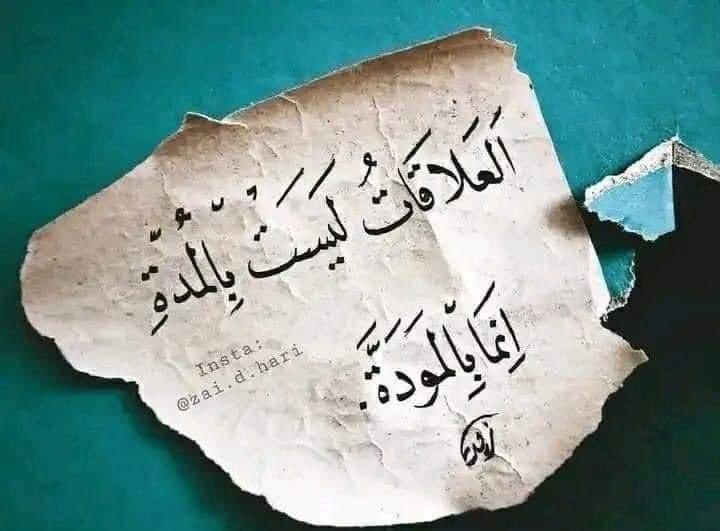 اَلعَلَاقَاتُ لَيسَتْ بِالْمُدّةِ
اِنمَا بِالْمَوَدَةَّ.
Insta:
@zai.d.hari